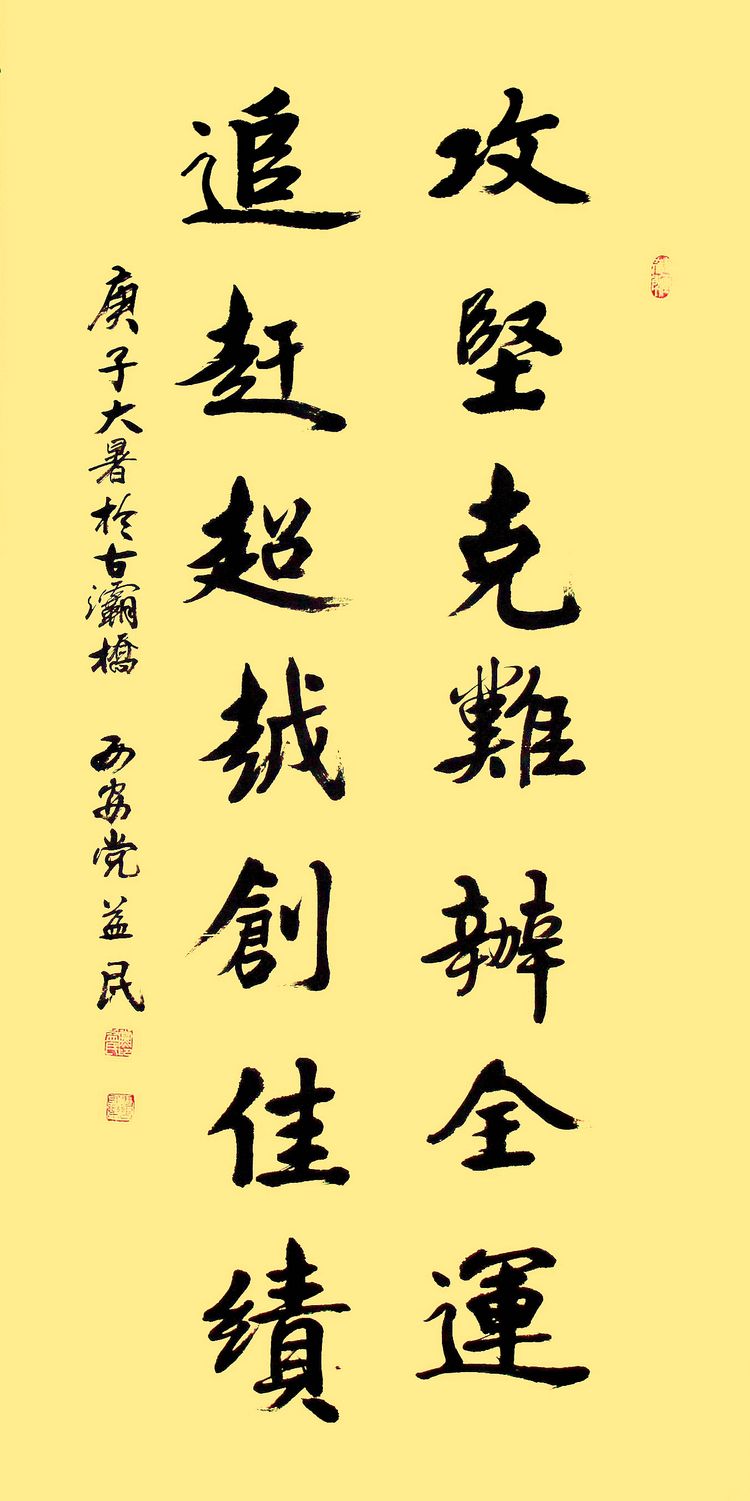 攻堅克難辦全運
追赶超越創佳績
庚子大暑於古灞橋 西安党益民